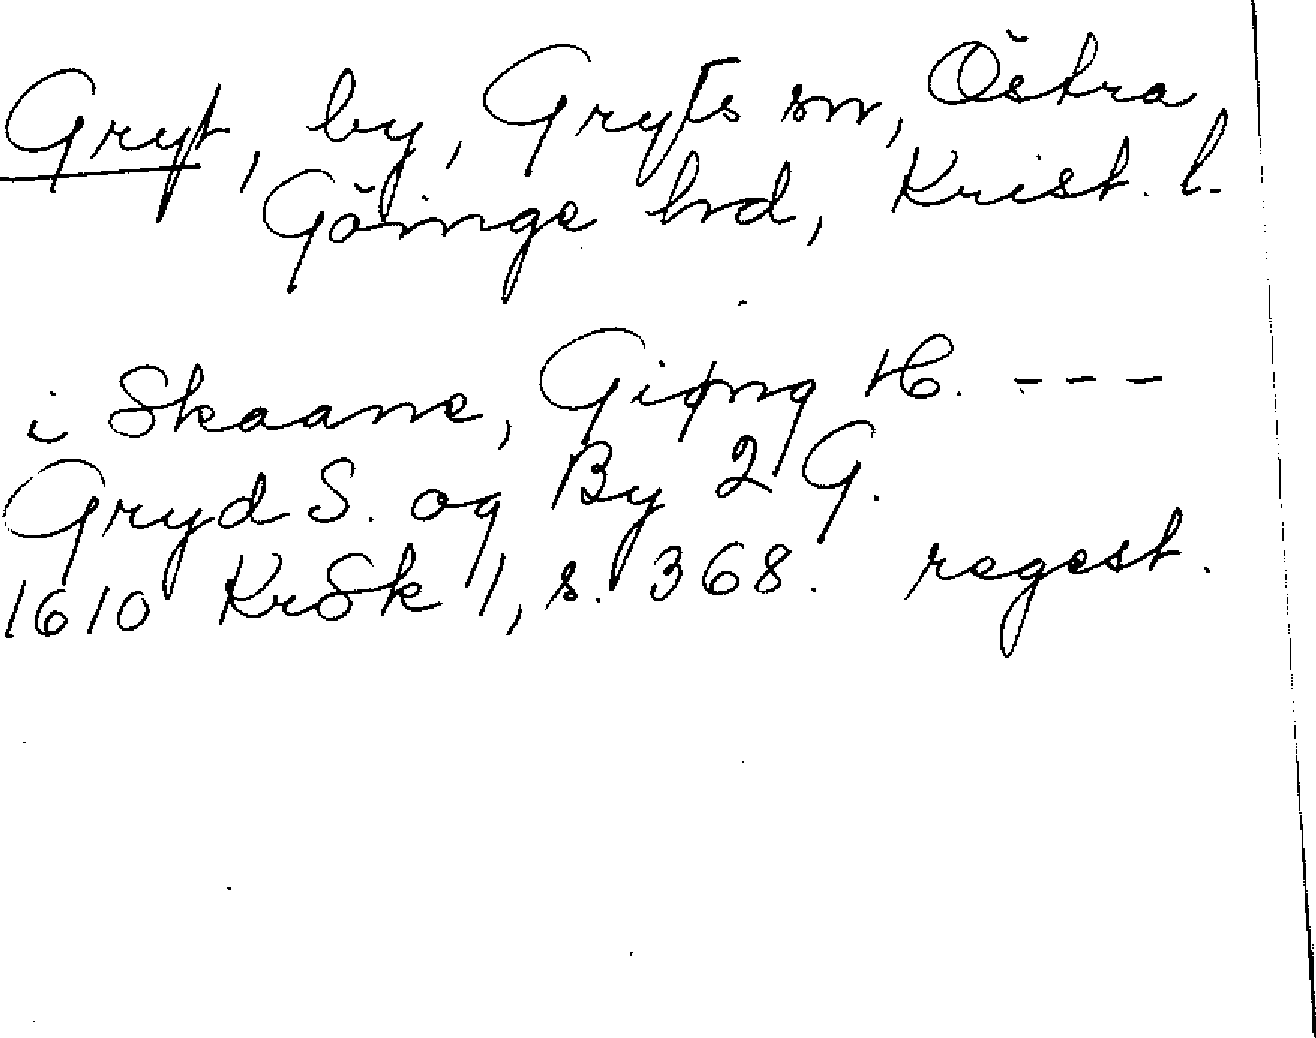 Gryt, by, Gryts sn, Östra
Göinge hd, Krist. l.
i Skaane, Giøng H. ---
Gryd S. og By 2 G.
1610 KrSk 1, s. 368. regest.